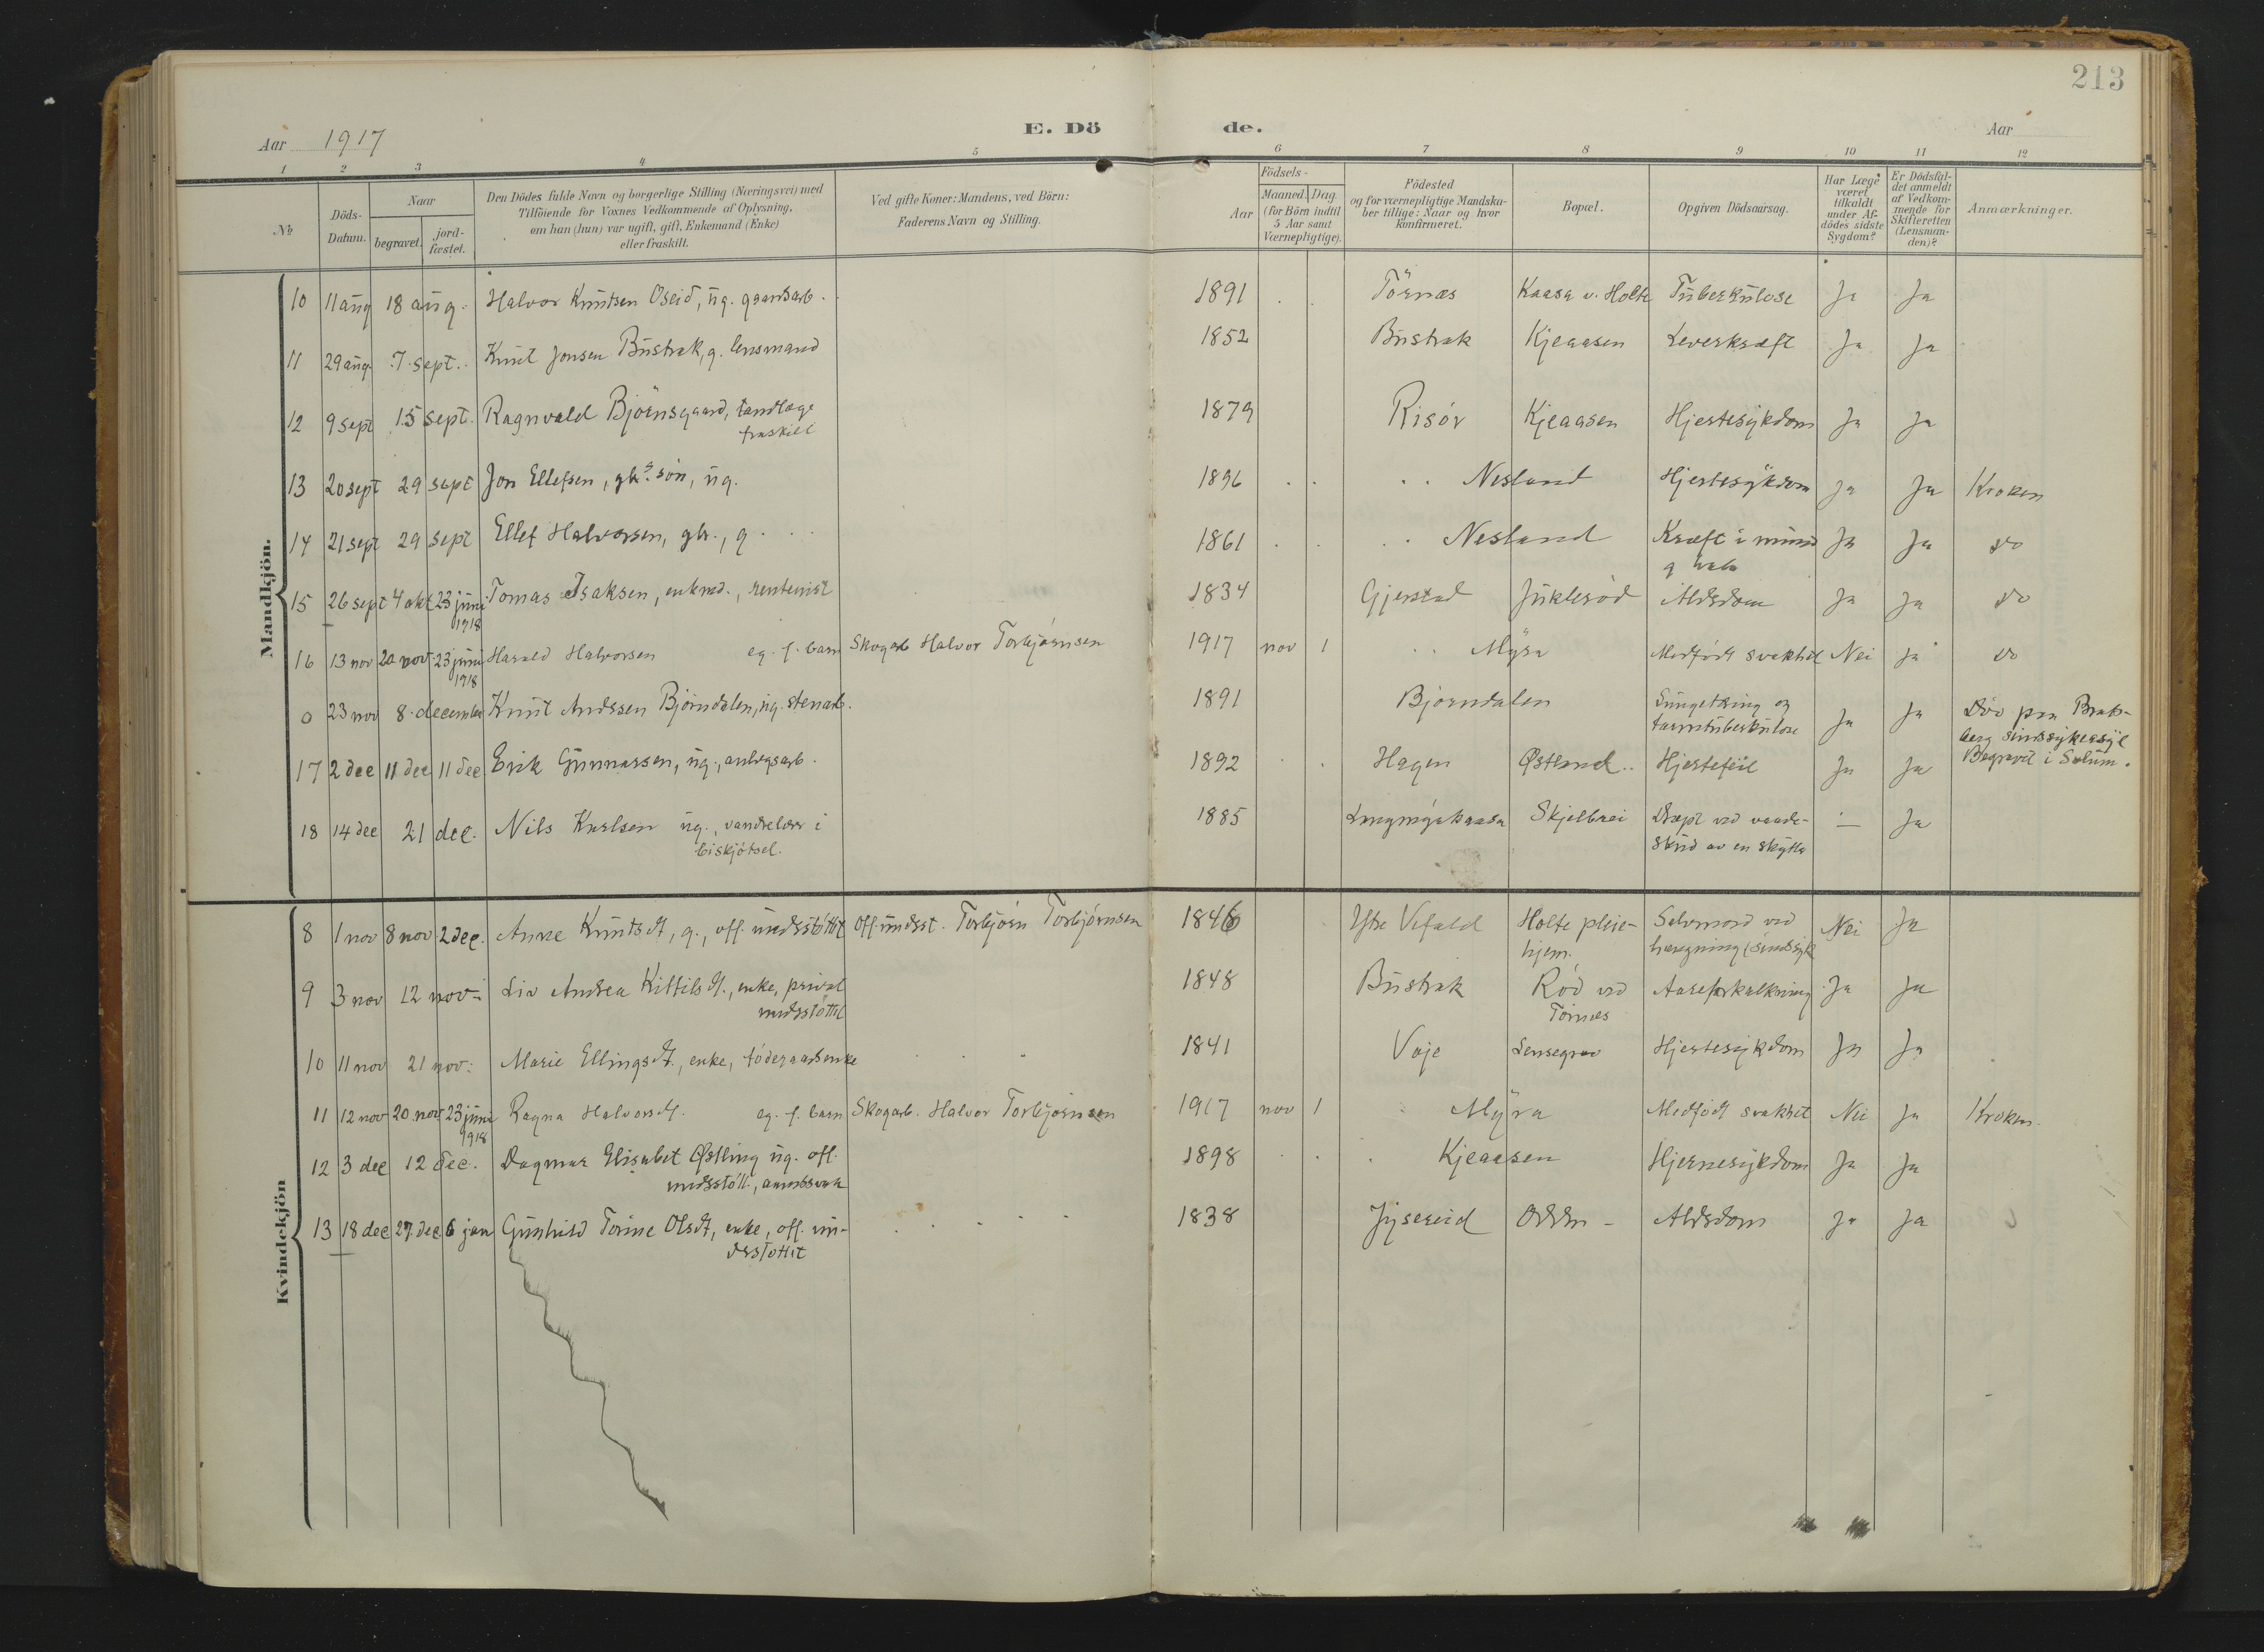 213
Aar 1917
E. Dö de.
Aar
1 2 3 4 5 6 7 8 9 10 11 12
№
Döds-Datum.
Naar
begravet.
jord-fæstet.
Den Dödes fulde Navn og borgerlige Stilling (Næringsvei) med
Tilföiende for Voxnes Vedkommende af Oplysning,
om han (hun) var ugift, gift, Enkemand (Enke)
eller fraskilt.
Ved gifte Koner: Mandens, ved Börn:
Faderens Navn og Stilling.
Födsels-
Aar
Maaned. Dag.
(for Börn indtil
5 Aar samt
Værnepligtige).
Födested
og for værnepligtige Mandska-
ber tillige: Naar og hvor
Konfirmeret.
Bopæl.
Opgiven Dödsaarsag.
Har Læge
været
tilkaldt
under Af-
dödes sidste
Sygdom?
Er Dödsfal-
det anmeldt
af Vedkom-
mende for
Skifteretten
(Lensman-
den)?
Anmærkninger.
Mandkjön.
10 11 aug 18 aug. Halvor Knutsen Oseid, ug. gaardsarb. 1891 Törnæs Kaasa v. Holte Tuberkulose Ja Ja
11 29 aug. 7. sept. Knut Jonsen Bustrak, g. lensmand 1852 Bustrak Kjeaasen Leverkræft Ja Ja
12 9 sept 15 sept. Ragnvald Björnsgaard, tandlæge 1879 Risör Kjeaasen Hjertesykdom Ja Ja
fraskilt
13 20 sept 29 sept Jon Ellefsen, gbrs. sön, ug. 1896 Nesland Hjertesykdom Ja Ja Kroken
14 21 sept 29 sept Ellef Halvorsen, gbr., g. 1861 Nesland Kræft i mund Ja Ja do
og hals
15 26 sept 4 okt 23 juni Tomas Isaksen, enkmd., rentenist 1834 Gjerstad Juklerød Aldsdom Ja Ja do
1918
16 13 nov 20 nov 23 juni Harald Halvorsen eg. f. barn Skogarb Halvor Torbjørnsen 1917 nov 1 Myra Medfødt svakhet Nei Ja do
1918
0 23 nov 8. december Knut Andssen Bjørndalen, ug. stenarb. 1891 Bjørndalen Lungetæring og Ja Ja Død paa Brats-
tarmtuberkulose berg sindssykeasyl
Begravet i Solum.
17 2 dec 11 dec 11 dec Erik Gunnarsen, ug., anlegsarb. 1892 Hagen Østland Hjertefeil Ja Ja
18 14 dec 21 dec. Nils Karlsen ug., vandrelærer i 1885 Skjelbrei Dræpt ved vaade- — Ja
biskjötsel. skud av en skytter
Kvindekjön
8 1 nov 8 nov 2 dec. Anne Knutsdt, g., off. understöttet Off. underst. Torbjörn Torbjørnsen 1846 Ytre Vefald Holte pleie- Selvmord ved Nei Ja
hjem. hængning (sindssyk
9 3 nov 12 nov Liv Andrea Kittilsdt., enke, privat 1848 Bustrak Rød ved Aareforkalkning Ja Ja
understöttet Törnæs
10 11 nov 21 nov: Marie Ellingsdt., enke, föderaadsenke 1841 Voje Lensegrav Hjertesykdom Ja Ja
11 12 nov 20 nov 23 juni Ragna Halvorsdt. eg. f. barn Skogarb. Halvor Torbjørnsen 1917 nov 1 Myra Medfødt svakhet Nei Ja Kroken
1918
12 3 dec 12 dec. Dagmar Elisabet Østling ug. off. 1898 Kjeaasen Hjernesykdom Ja Ja
understött., aandssvak
13 18 dec 27. dec 6 jan Gunhild Torine Olsdt, enke, off. un- 1838 Jysereid Odden Aldsdom Ja Ja
derstöttet